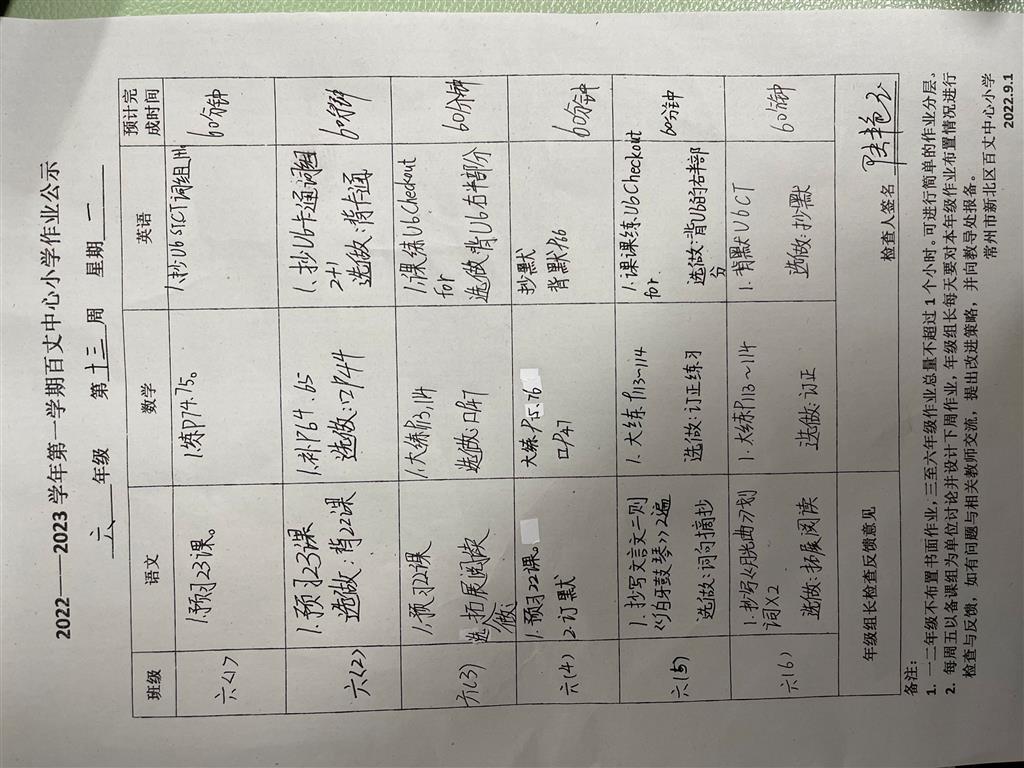 2022——2023 学年第一学期百丈中心小学作业公示
六 年级 第 十三 周 星期 一
班级 语文 数学 英语 预计完成时间
六(1) 1.预习23课。 1.练P74.75。 1.抄U6 ST CT词组 60分钟
六(2) 1.预习23课 1.补P64.65 1.抄U6卡通词组 60分钟
选做:背22课 选做:口P44 2+1
选做:背卡通
六(3) 1.预习22课 1.大练P113,114 1.课练U6 Checkout 60分钟
选做:拓展阅读 选做:口P47 for
选做:背U6右半部分
六(4) 1.预习22课。 大练P75.76 抄默 60分钟
2.订默 口P47 背默P66
六(5) 1.抄写文言文二则 1.大练P113~114 1.课课练U6 Checkout 60分钟
《伯牙鼓琴》2遍 选做:订正练习 for
选做:词句摘抄 选做:背U6的右半部分
六(6) 1.抄写《月光曲》划 1.大练P113~114 1.背默U6 CT 60分钟
词X2 选做:订正 选做:抄默
选做:拓展阅读
年级组长检查反馈意见 检查人签名
备注:
1. 一二年级不布置书面作业,三至六年级作业总量不超过 1 个小时。可进行简单的作业分层。
2. 每周五以备课组为单位讨论并设计下周作业。年级组长每天要对本年级作业布置情况进行
检查与反馈,如有问题与相关教师交流,提出改进策略,并向教导处报备。
常州市新北区百丈中心小学
2022.9.1